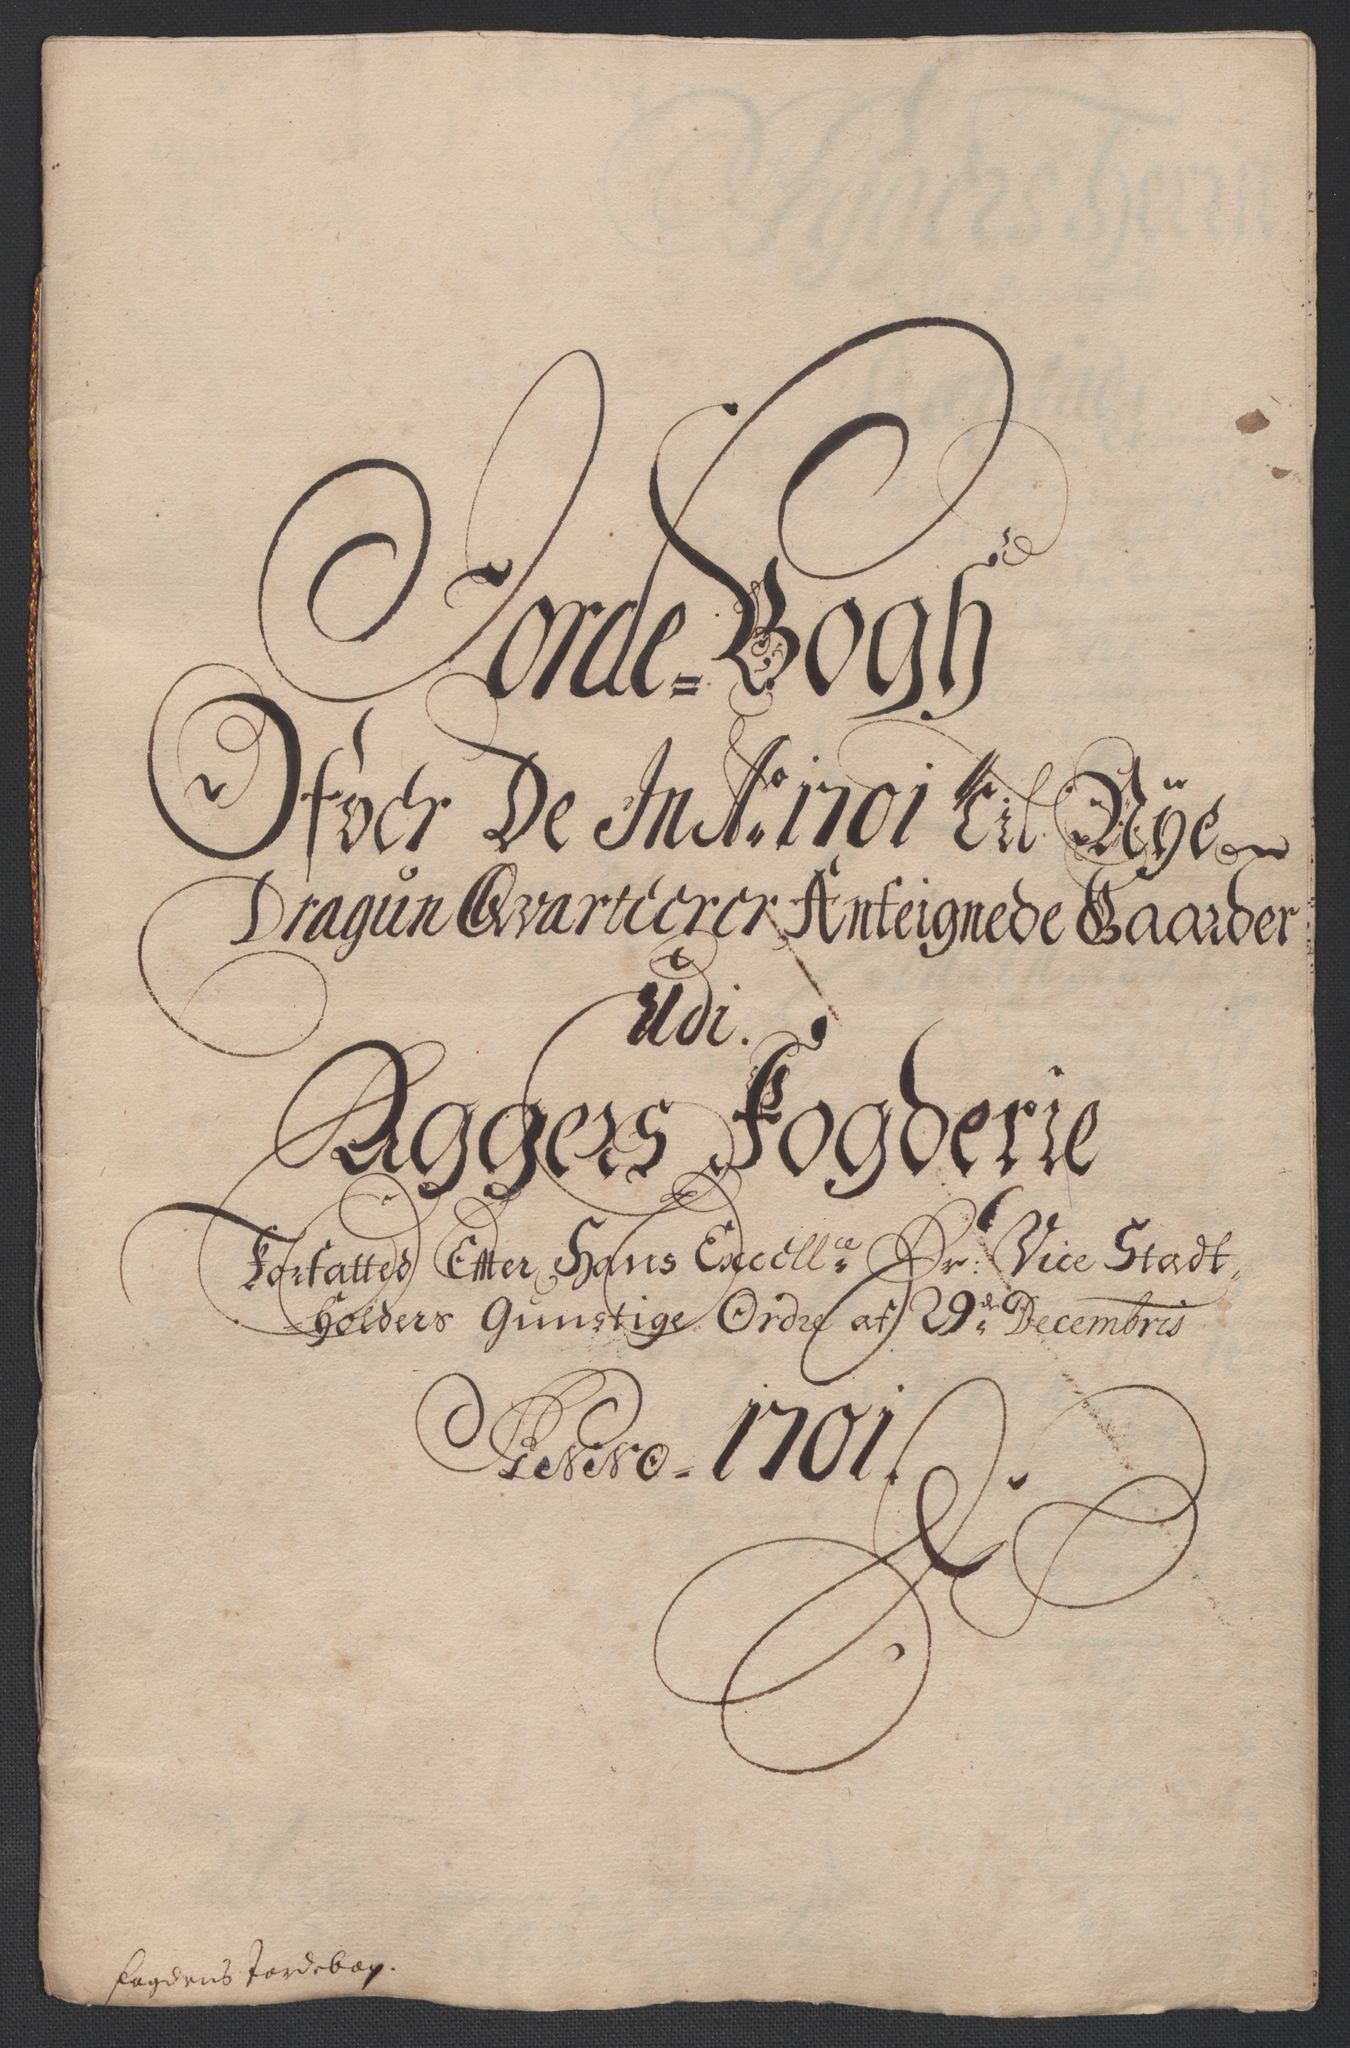 Jorde-Bogh
Ofver De In Ao. 1701 til Nÿe
Dragun Qvarteerer Anteignede Gaarder
Udi.
Aggers Fogderie
Forfatted Efter Hans Excellce Hr: Vice Stadt-
Holders Gunstige Ordre af 29de Decembris
Anno-1701.
fogdens Jordebog.